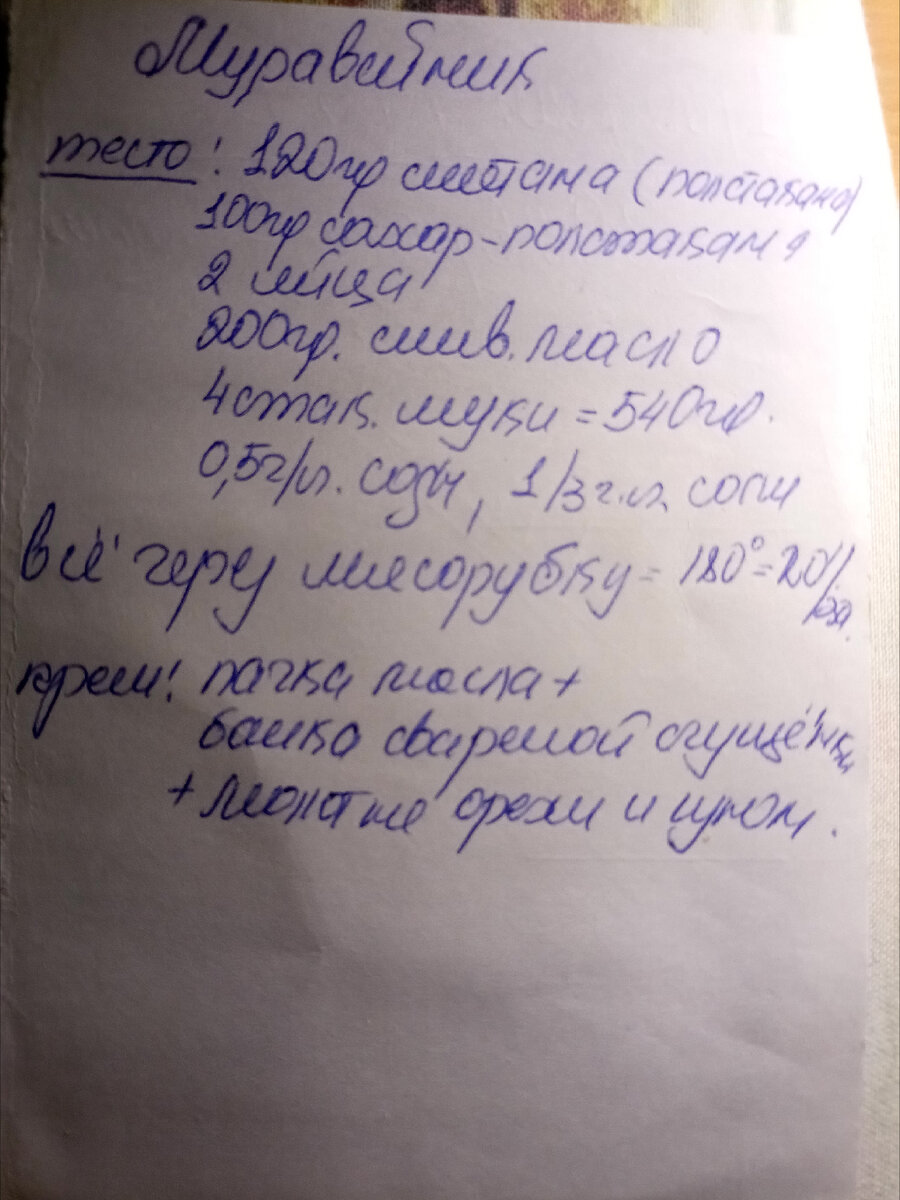 Муравейник
тесто: 120гр сметана (полстакана)
100гр сахар-полстакана
2 яйца
200гр. слив. масло
4 стак. муки = 540гр.
0,5 г/л. соды, 1/3 г.л. соли
всё через мясорубку = 180° = 20
крем: пачка масла +
банка вареной сгущёнки
+ молотые орехи и изюм.